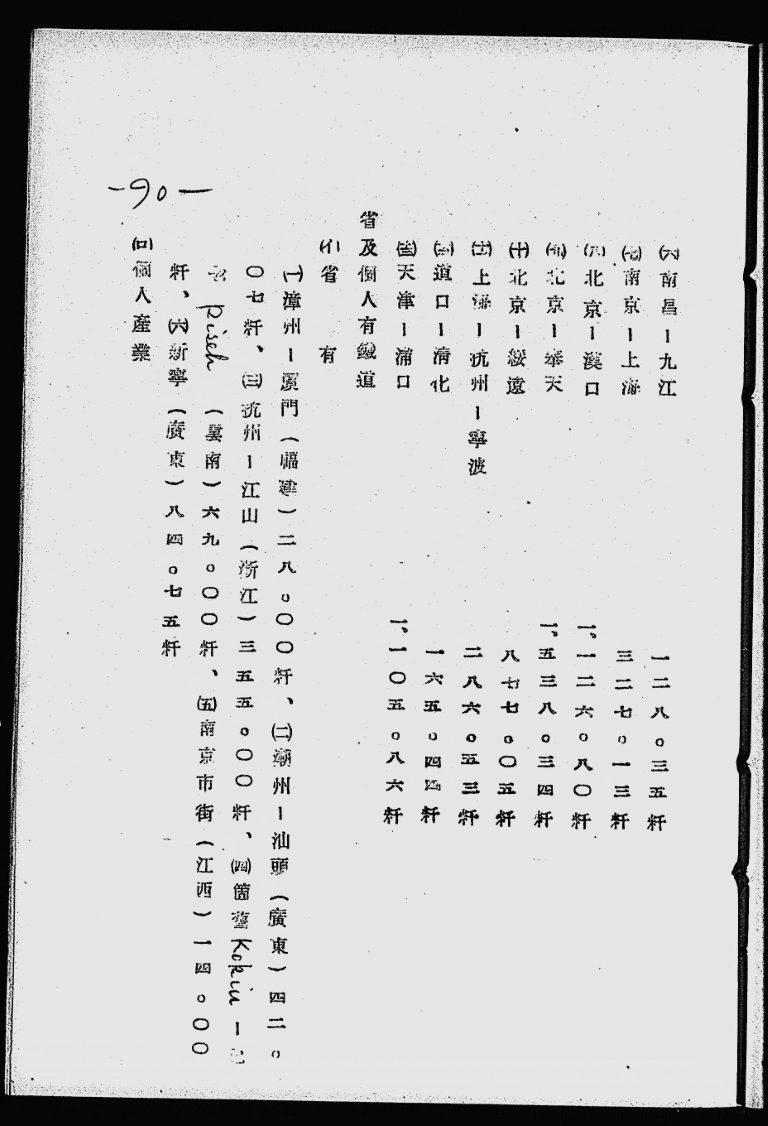 ㈥南昌ー九江 一二八。三五粁
㈦南京ー上海 三二七。一三粁
㈧北京ー漢口 一、一二六。八〇粁
㈨北京ー奉天 一、五三八。三四粁
㈩北京ー綏遠 八七七。〇五粁
上海ー杭州ー寧波 二八六。五三粁
道口ー清化 一六五。四四粁
天津ー浦口 一、一〇五。八六粁
省及個人有鐵道
(イ)省有
㈠漳州ー廈門(福建)二八。〇〇粁、㈡潮州ー汕頭(廣東)四二。
〇七粁、㈢杭州ー江山(浙江)三五五。〇〇粁、㈣箇舊Kokiuー
Piseh(雲南)六九。〇〇粁、㈤南京市街(江西)一四。〇〇
粁、㈥新寧(廣東)八四。七五粁
(ロ)個人產業
-90-